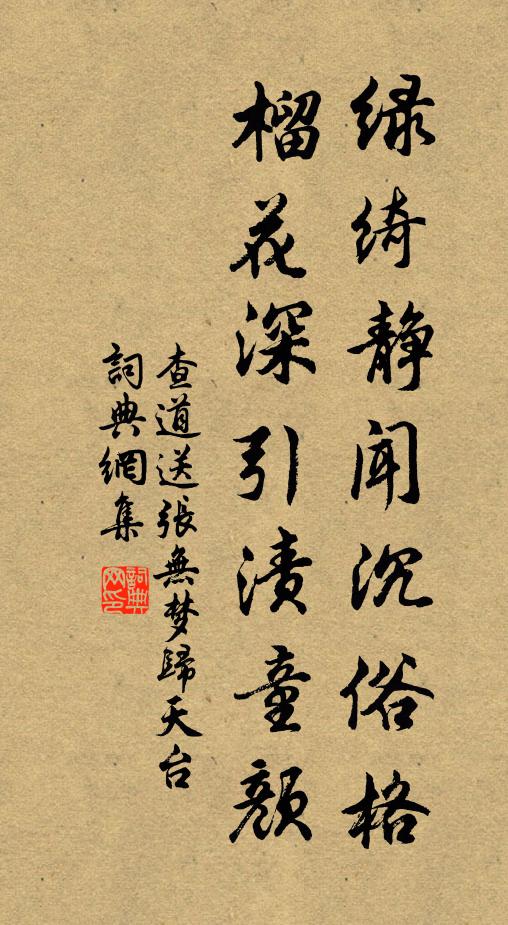 绿绮静闻沉俗格
榴花深引渍童颜
查道送張無梦歸天台
詞典網集
詞典网印